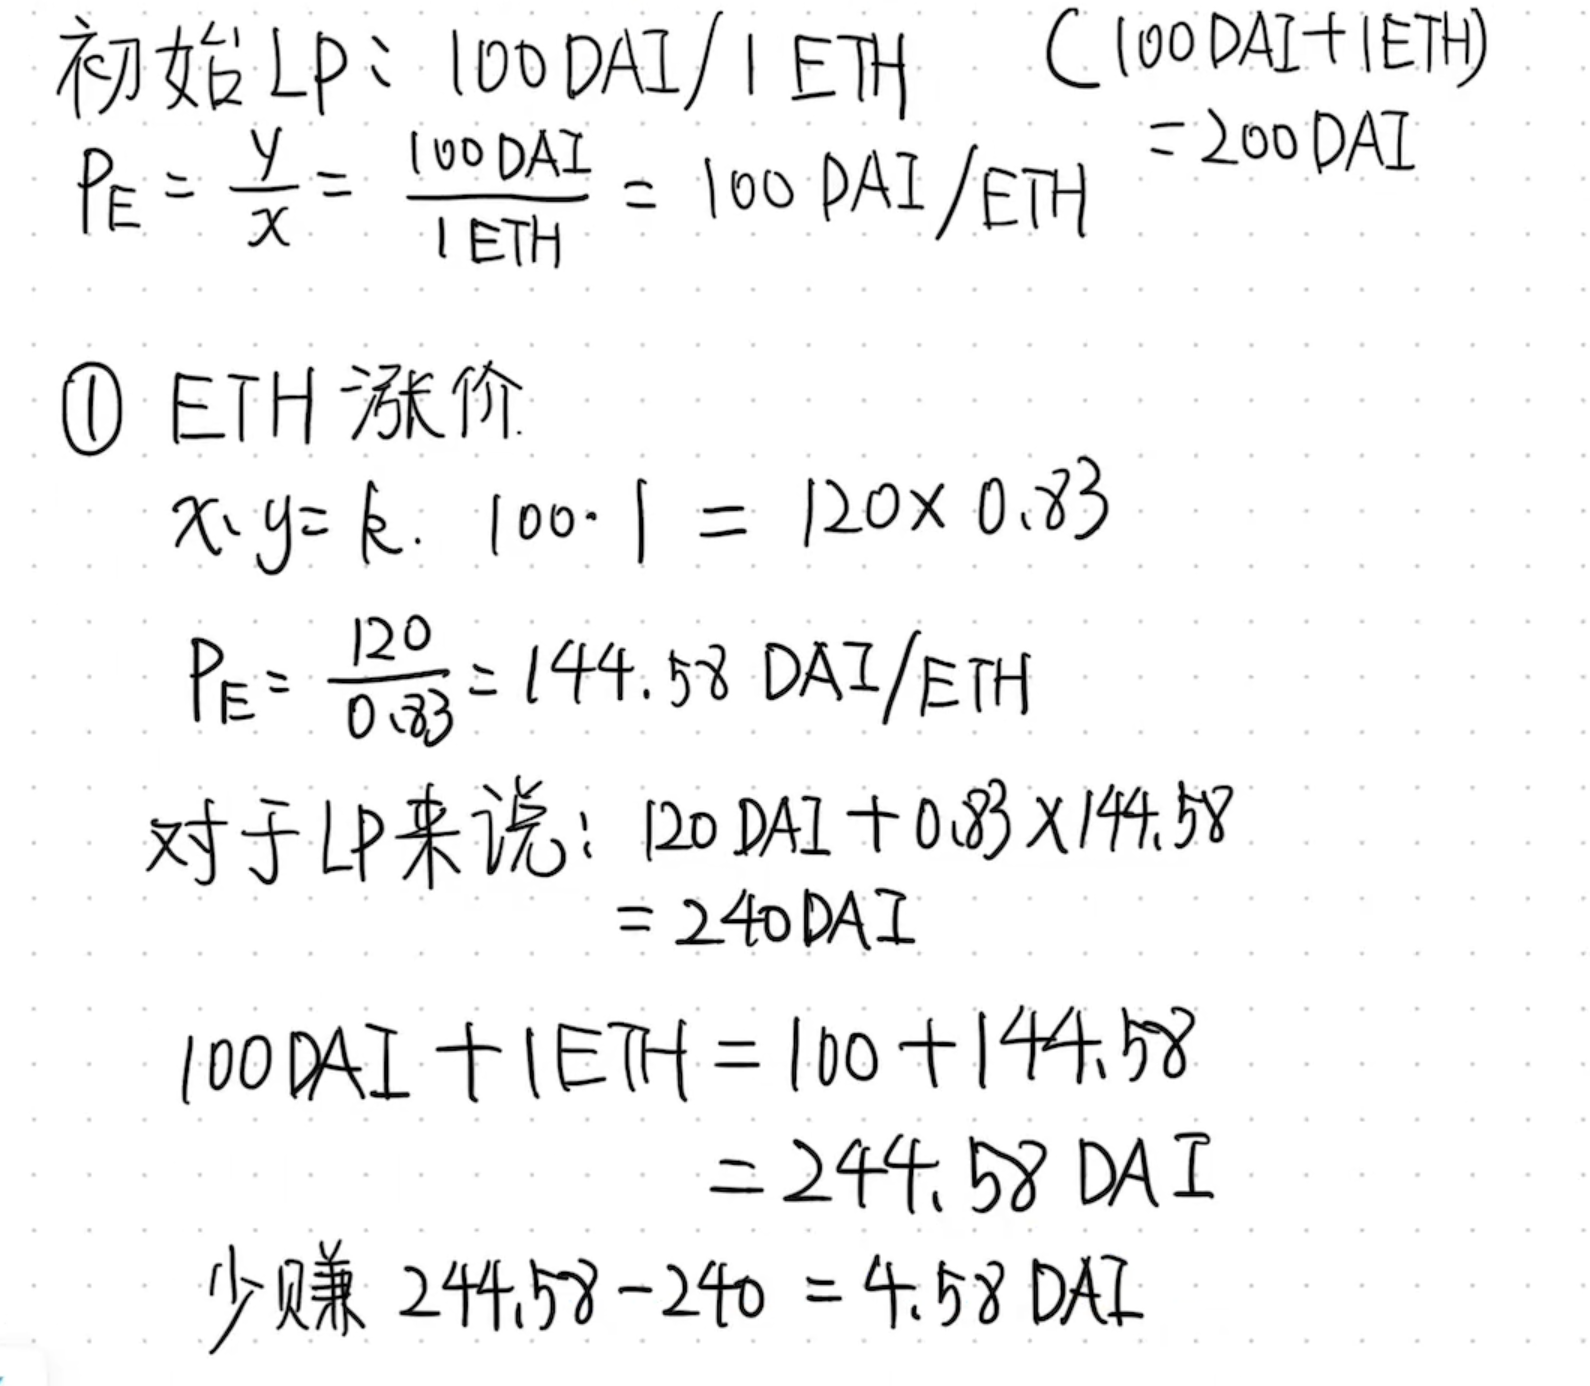 初始LP: 100DAI/1 ETH (100DAI+1ETH)
=200DAI
PE = y/x = 100DAI/1ETH = 100 DAI/ETH
① ETH 涨价.
x.y=k. 100·1 = 120×0.83
PE = 120/0.83 = 144.58 DAI/ETH
对于LP来说: 120DAI+0.83×144.58
=240DAI
100DAI+1ETH=100+144.58
=244.58 DAI
少赚 244.58-240 = 4.58 DAI